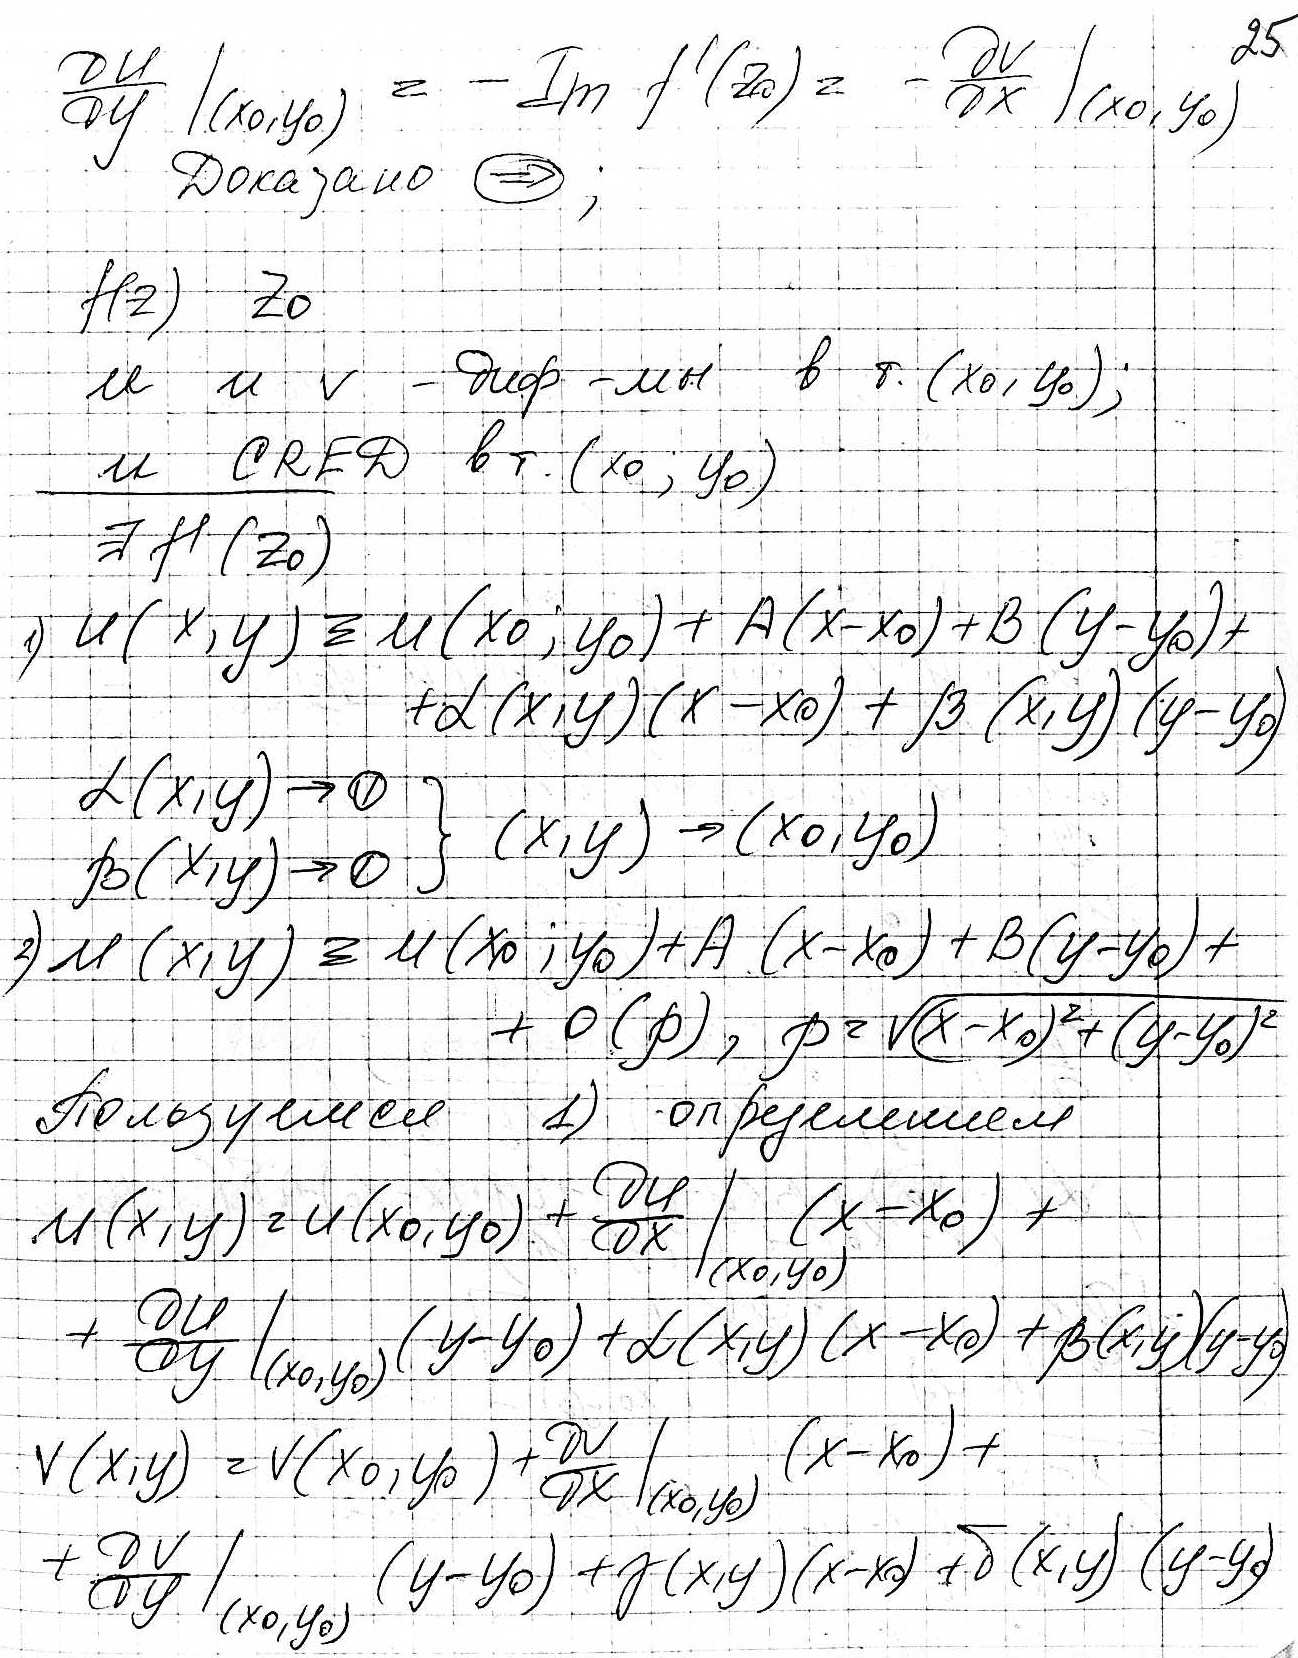 25
∂u/∂y |(x0,y0) = - Im f'(z0) = - ∂v/∂x |(x0,y0)
Доказано ⇒ ;
f(z) z0
u и v - диф-мы в т. (x0, y0);
и CRED в т. (x0; y0)
∃ f'(z0)
1) u(x,y) ≡ u(x0; y0) + A(x-x0) + B(y-y0) +
+ α(x,y)(x-x0) + β(x,y)(y-y0)
α(x,y) → 0
β(x,y) → 0 } (x,y) → (x0,y0)
2) u(x,y) ≡ u(x0; y0) + A (x-x0) + B(y-y0) +
+ o(ρ), ρ = √(x-x0)² + (y-y0)²
Пользуемся 1) определением
u(x,y) = u(x0,y0) + ∂u/∂x |(x0,y0) (x-x0) +
+ ∂u/∂y |(x0,y0) (y-y0) + α(x,y)(x-x0) + β(x,y)(y-y0)
v(x,y) = v(x0,y0) + ∂v/∂x |(x0,y0) (x-x0) +
+ ∂v/∂y |(x0,y0) (y-y0) + γ(x,y)(x-x0) + δ(x,y)(y-y0)